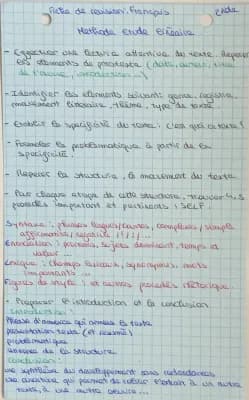 Fiche de révision Français 2nde
Méthode étude linéaire
- Effectuer une lecture attentive du texte. Repérer
les éléments de (date, auteur, titre
de l'œuvre, introduction...)
- Identifier les éléments suivants: genre, registre,
mouvement littéraire, thème, type de texte.
- Etablir la spécificité du texte: c'est quoi ce texte?
- Formuler la problématique à partir de la
spécificité.
- Repérer la structure, le mouvement du texte
- Par chaque étape de cette structure, trouver 4-5
procédés important et pertinents: SELF.
Syntaxe: phrases longues/courtes, complexe/simple
affirmative, négative /!/?/...
Enonciation: pronoms, sujets dominant, temps et
valeur...
Lexique: champs lexicaux, synonymes, mots
importants...
Figures de style: et autres procédés rhétorique.
- Préparer l'introduction et la conclusion
introduction:
Phrase d'amorce qui amène le texte
présentation texte (et résumé)
problématique
annonce de la structure
Conclusion:
une synthèse du développement sans redondances
une ouverture qui permet de relier l'extrait à un autre
texte, à une autre œuvre...